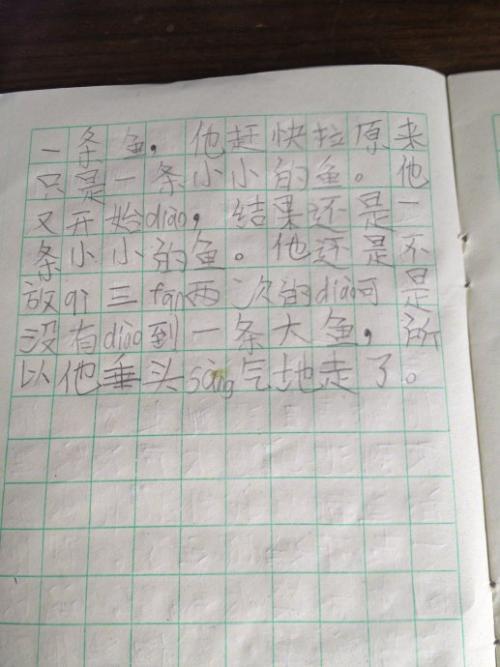 一条鱼，他赶快拉原来
只是一条小小的鱼。他
又开始diào，结果还是一
条小小的鱼。他还是不
放qì三fān两次的diào可是
没有diào到一条大鱼，所
以他垂头sàng气地走了。